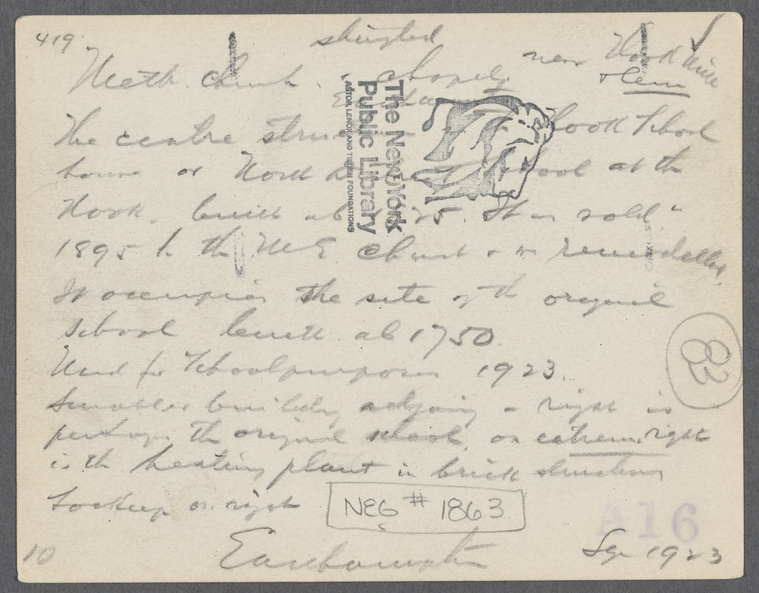 419
shingled
Meth. Church. Chapel. near Hook Mill
The centre
Hook School
house or North School at the
Hook. built ab It was sold
1895 to the M E Church & was remodelled.
It occupies the site of the original
School built ab 1750
Used for School purposes 1923.
Smaller building adjoing on right is
perhaps the original school, on extreme right
is the heating plant in brick structure
Looking on right
NEG # 1863
83
A16
10
Easthampton
Sep 1923
The New York
Public Library
ASTOR, LENOX AND TILDEN FOUNDATIONS